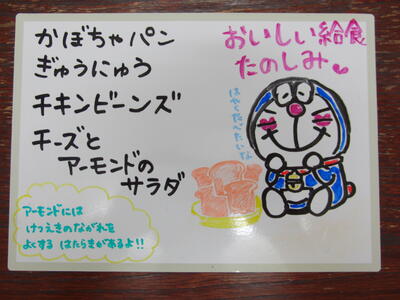 かぼちゃパン
ぎゅうにゅう
チキンビーンズ
チーズと
アーモンドの
サラダ
おいしい給食
たのしみ
はやくたべたいな
アーモンドには
けつえきのながれを
よくする はたらきがあるよ!!